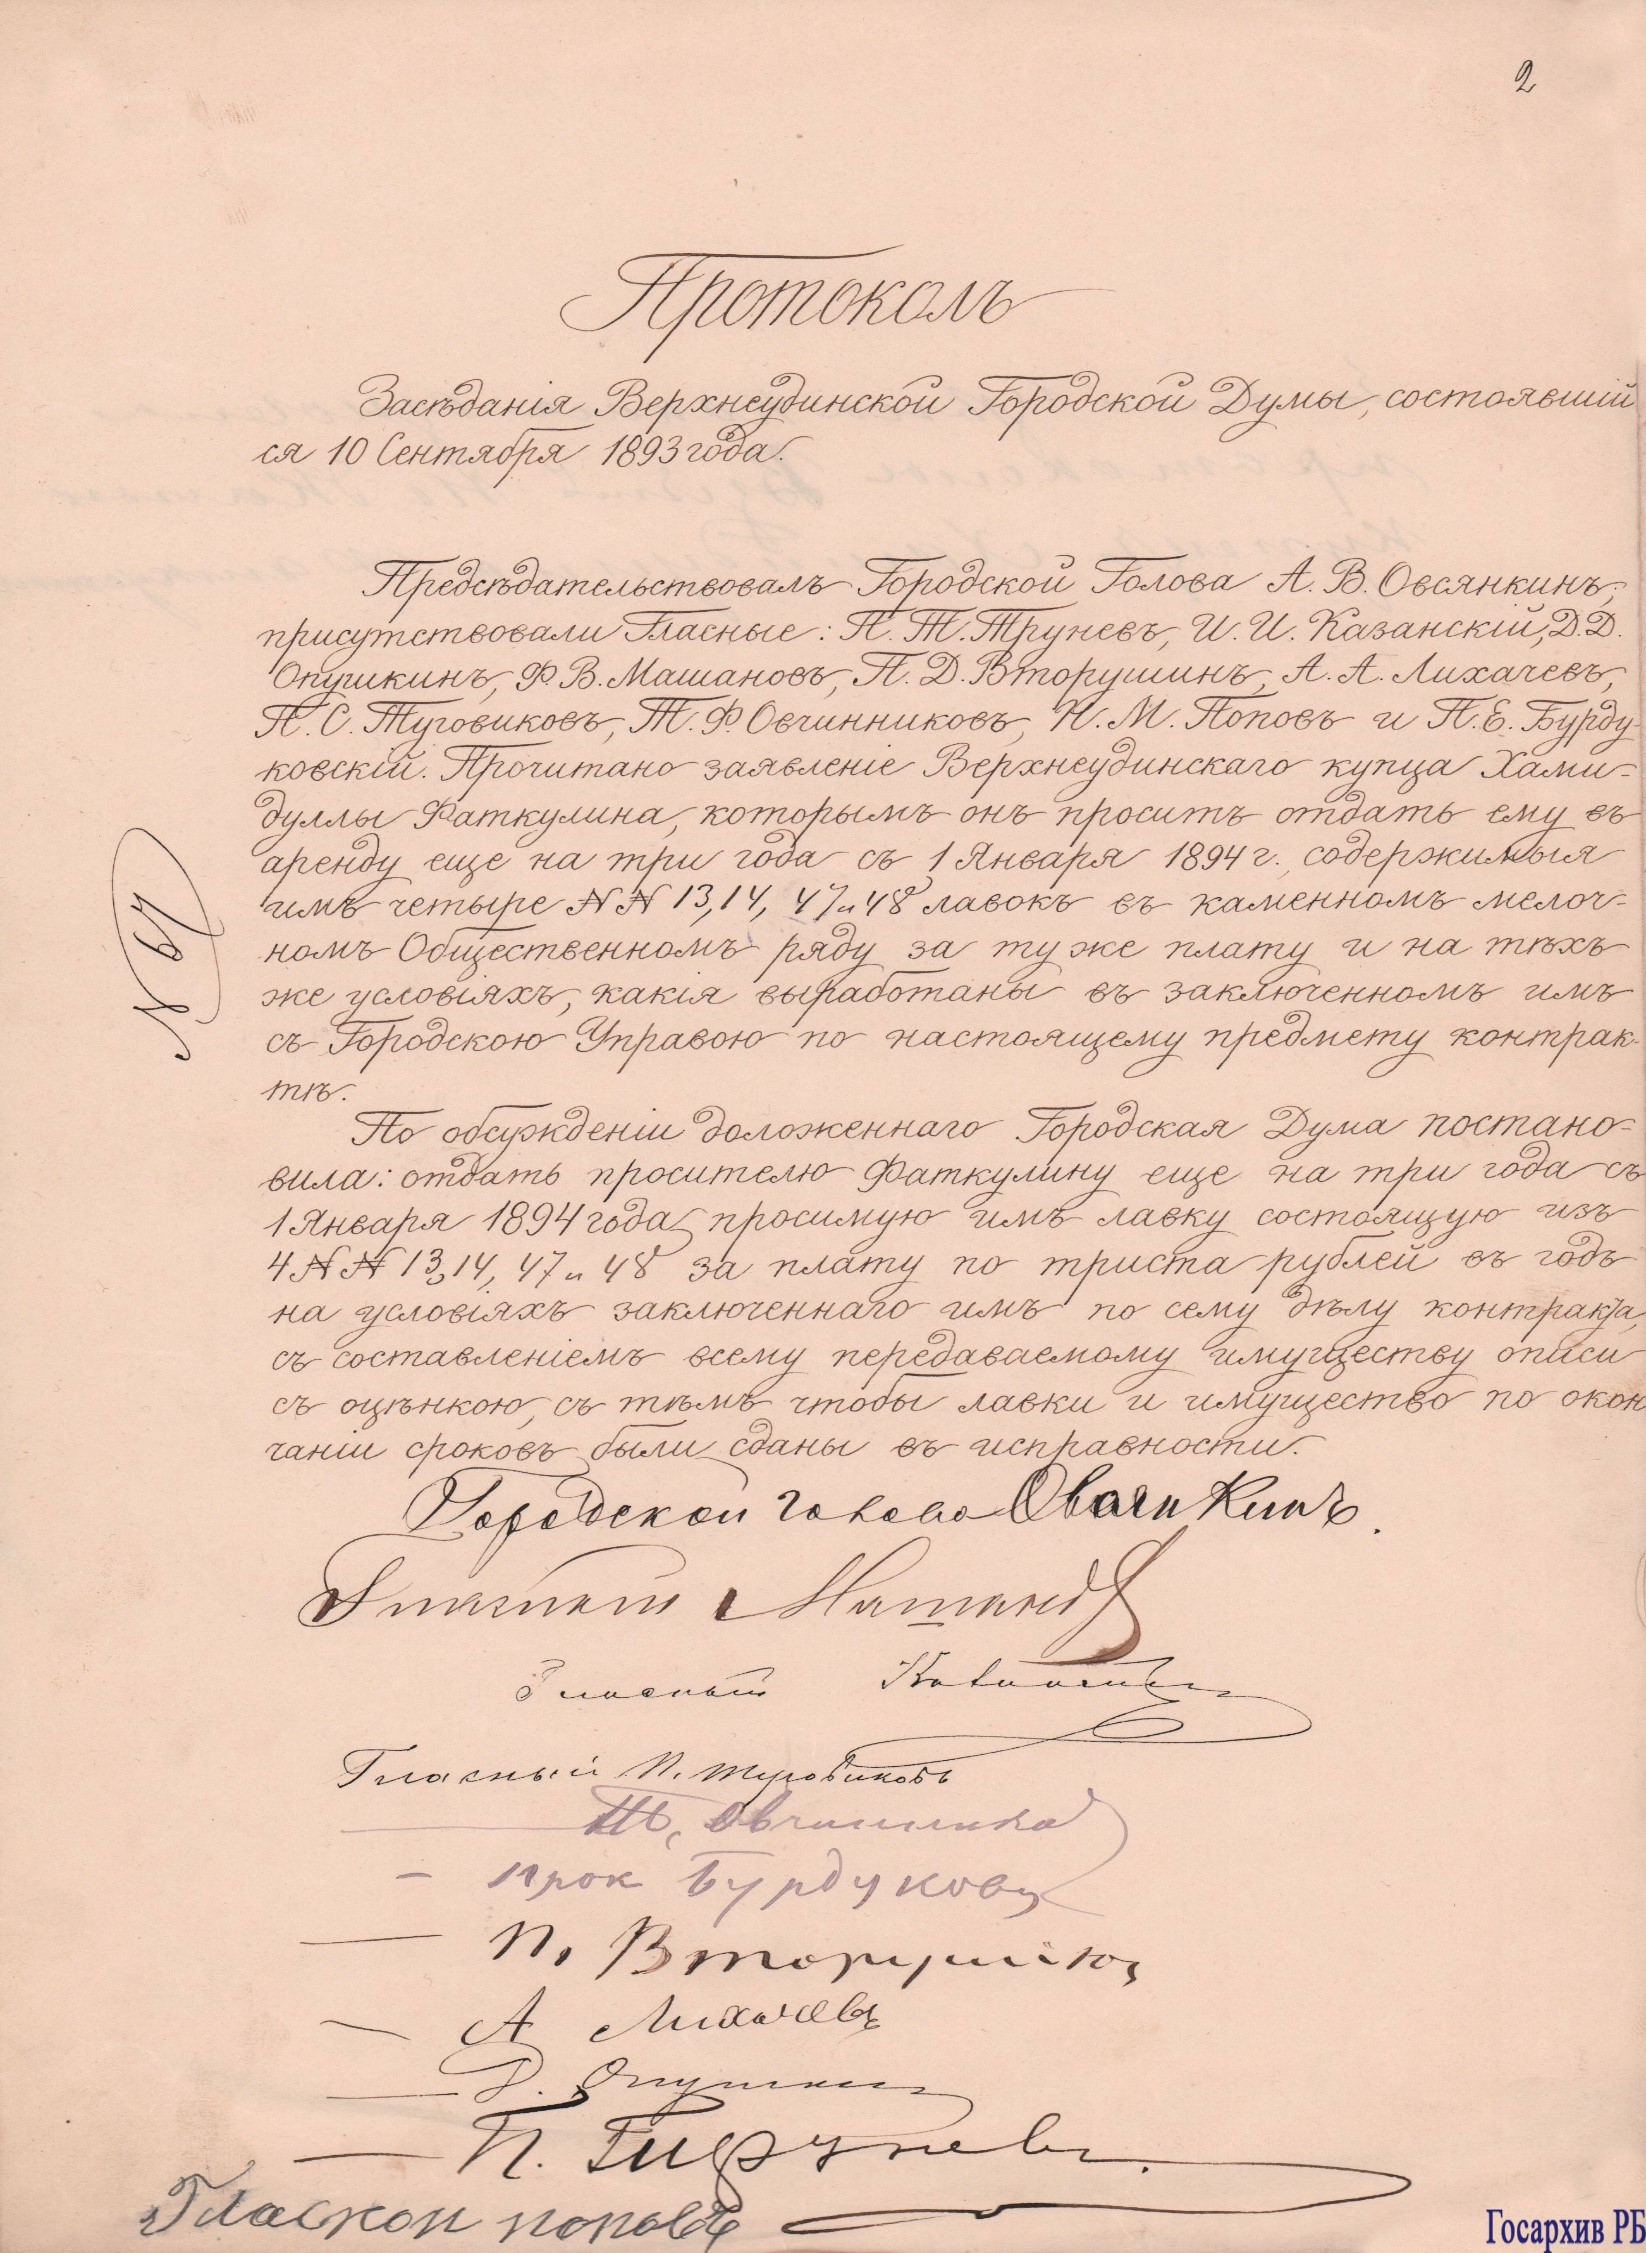 2
Протоколъ
Засѣданія Верхнеудинской Городской Думы, состоявшій
ся 10 Сентября 1893 года.
Предсѣдательствовалъ Городской Голова А. В. Овсянкинъ;
присутствовали Гласные: П. Т. Труневъ, И. И. Казанскій, Д. Д.
Опушкинъ, Ф. В. Машановъ, П. Д. Вторушинъ, А. А. Лихачевъ,
П. С. Туговиковъ, Т. Ф. Овчинниковъ, Н. М. Поповъ и П. Е. Бурду-
ковскій. Прочитано заявленіе Верхнеудинскаго купца Хами-
дуллы Фаткулина, которымъ онъ проситъ отдать ему въ
аренду еще на три года съ 1 Января 1894 г., содержимыя
имъ четыре №№ 13, 14, 47 и 48 лавокъ въ каменномъ мелоч-
номъ Общественномъ ряду за ту же плату и на тѣхъ
же условіяхъ, какія выработаны въ заключенномъ имъ
съ Городскою Управою по настоящему предмету контрак-
тѣ.
№ 67
По обсужденіи доложеннаго Городская Дума постано-
вила: отдать просителю Фаткулину еще на три года съ
1 Января 1894 года просимую имъ лавку состоящую изъ
4 №№ 13, 14, 47 и 48 за плату по триста рублей въ годъ
на условіяхъ заключеннаго имъ по сему дѣлу контракта,
съ составленіемъ всему передаваемому имуществу описи
съ оцѣнкою, съ тѣмъ чтобы лавки и имущество по окон
чаніи сроковъ были сданы въ исправности.
Городской голова Овсянкинъ.
Гласный Машановъ
Гласный Казанскій
Гласный П. Туговиковъ
— Т. Овчинниковъ
— Прок Бурдуковск
— П. Вторушинъ
— А Лихачевъ
— Д. Опушкинъ
— П. Труневъ.
Гласной поповъ
Госархив РБ